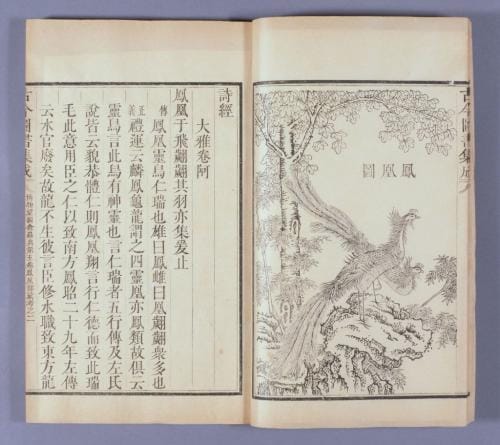 古今圖書集成
鳳凰圖
詩經
大雅卷阿
鳳凰于飛翽翽其羽亦集爰止
傳鳳凰靈鳥仁瑞也雄曰鳳雌曰凰翽翽衆多也
正義禮運云麟鳳龜龍謂之四靈凰亦鳳類故俱云
靈鳥言此鳥有神靈也言仁瑞者五行傳及左氏
說皆云貌恭體仁則鳳凰翔言行仁德而致此瑞
毛此意用臣之仁以致南方鳳昭二十九年左傳
云水官廢矣故龍不生彼言臣修水職致東方龍
古今圖書集成